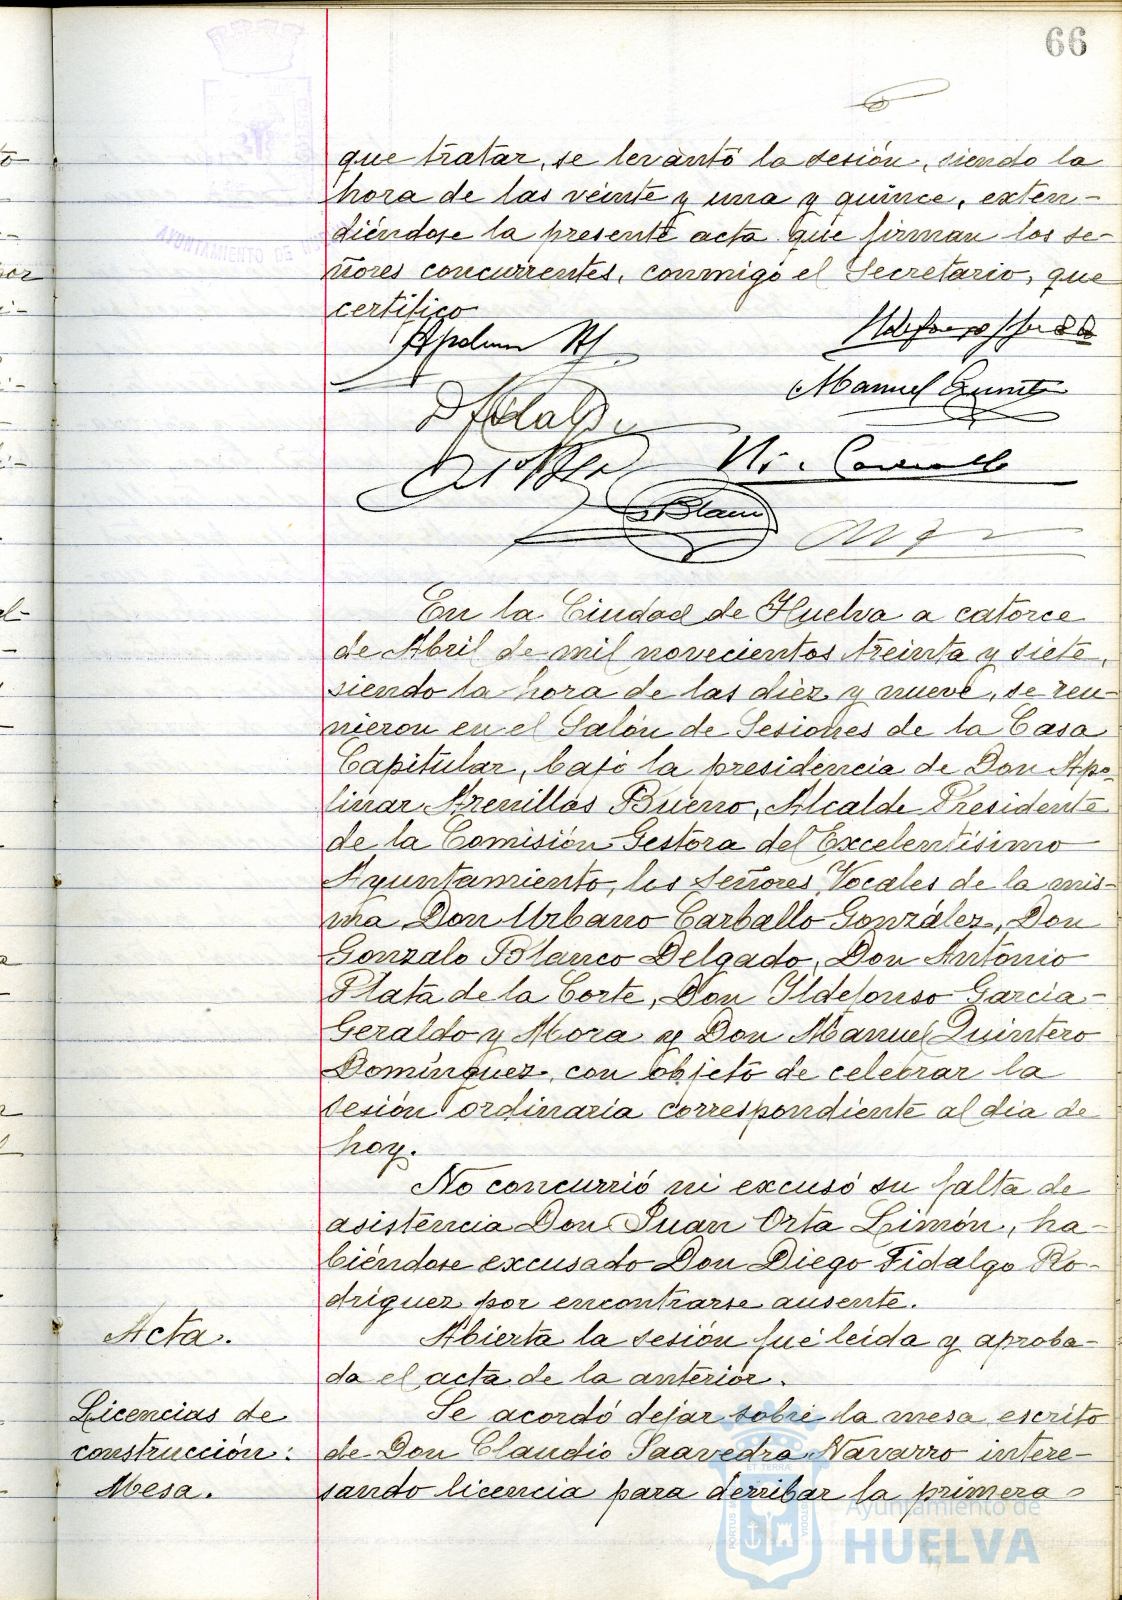 66
que tratar, se levantó la sesión, siendo la
hora de las veinte y una y quince, exten-
diéndose la presente acta que firman los se-
ñores concurrentes, conmigo el Secretario, que
certifico
Manuel Quinte
Blanco
En la Ciudad de Huelva a catorce
de Abril de mil novecientos treinta y siete,
siendo la hora de las diez y nueve, se reu-
nieron en el Salón de Sesiones de la Casa
Capitular, bajo la presidencia de Don Apo-
linar Arenillas Bueno, Alcalde Presidente
de la Comisión Gestora del Excelentísimo
Ayuntamiento, los Señores Vocales de la mis-
ma Don Urbano Carballo González, Don
Gonzalo Blanco Delgado, Don Antonio
Plata de la Corte, Don Ildefonso García-
Geraldo y Mora y Don Manuel Quintero
Domínguez, con objeto de celebrar la
sesión ordinaria correspondiente al dia de
hoy.
No concurrió ni excusó su falta de
asistencia Don Juan Orta Limón, ha-
biéndose excusado Don Diego Fidalgo Ro-
driguez por encontrarse ausente.
Acta.
Abierta la sesión fué leida y aproba-
da el acta de la anterior.
Licencias de
construcción:
Mesa.
Se acordó dejar sobre la mesa escrito
de Don Claudio Saavedra Navarro intere-
sando licencia para derribar la primera
Ayuntamiento de
HUELVA